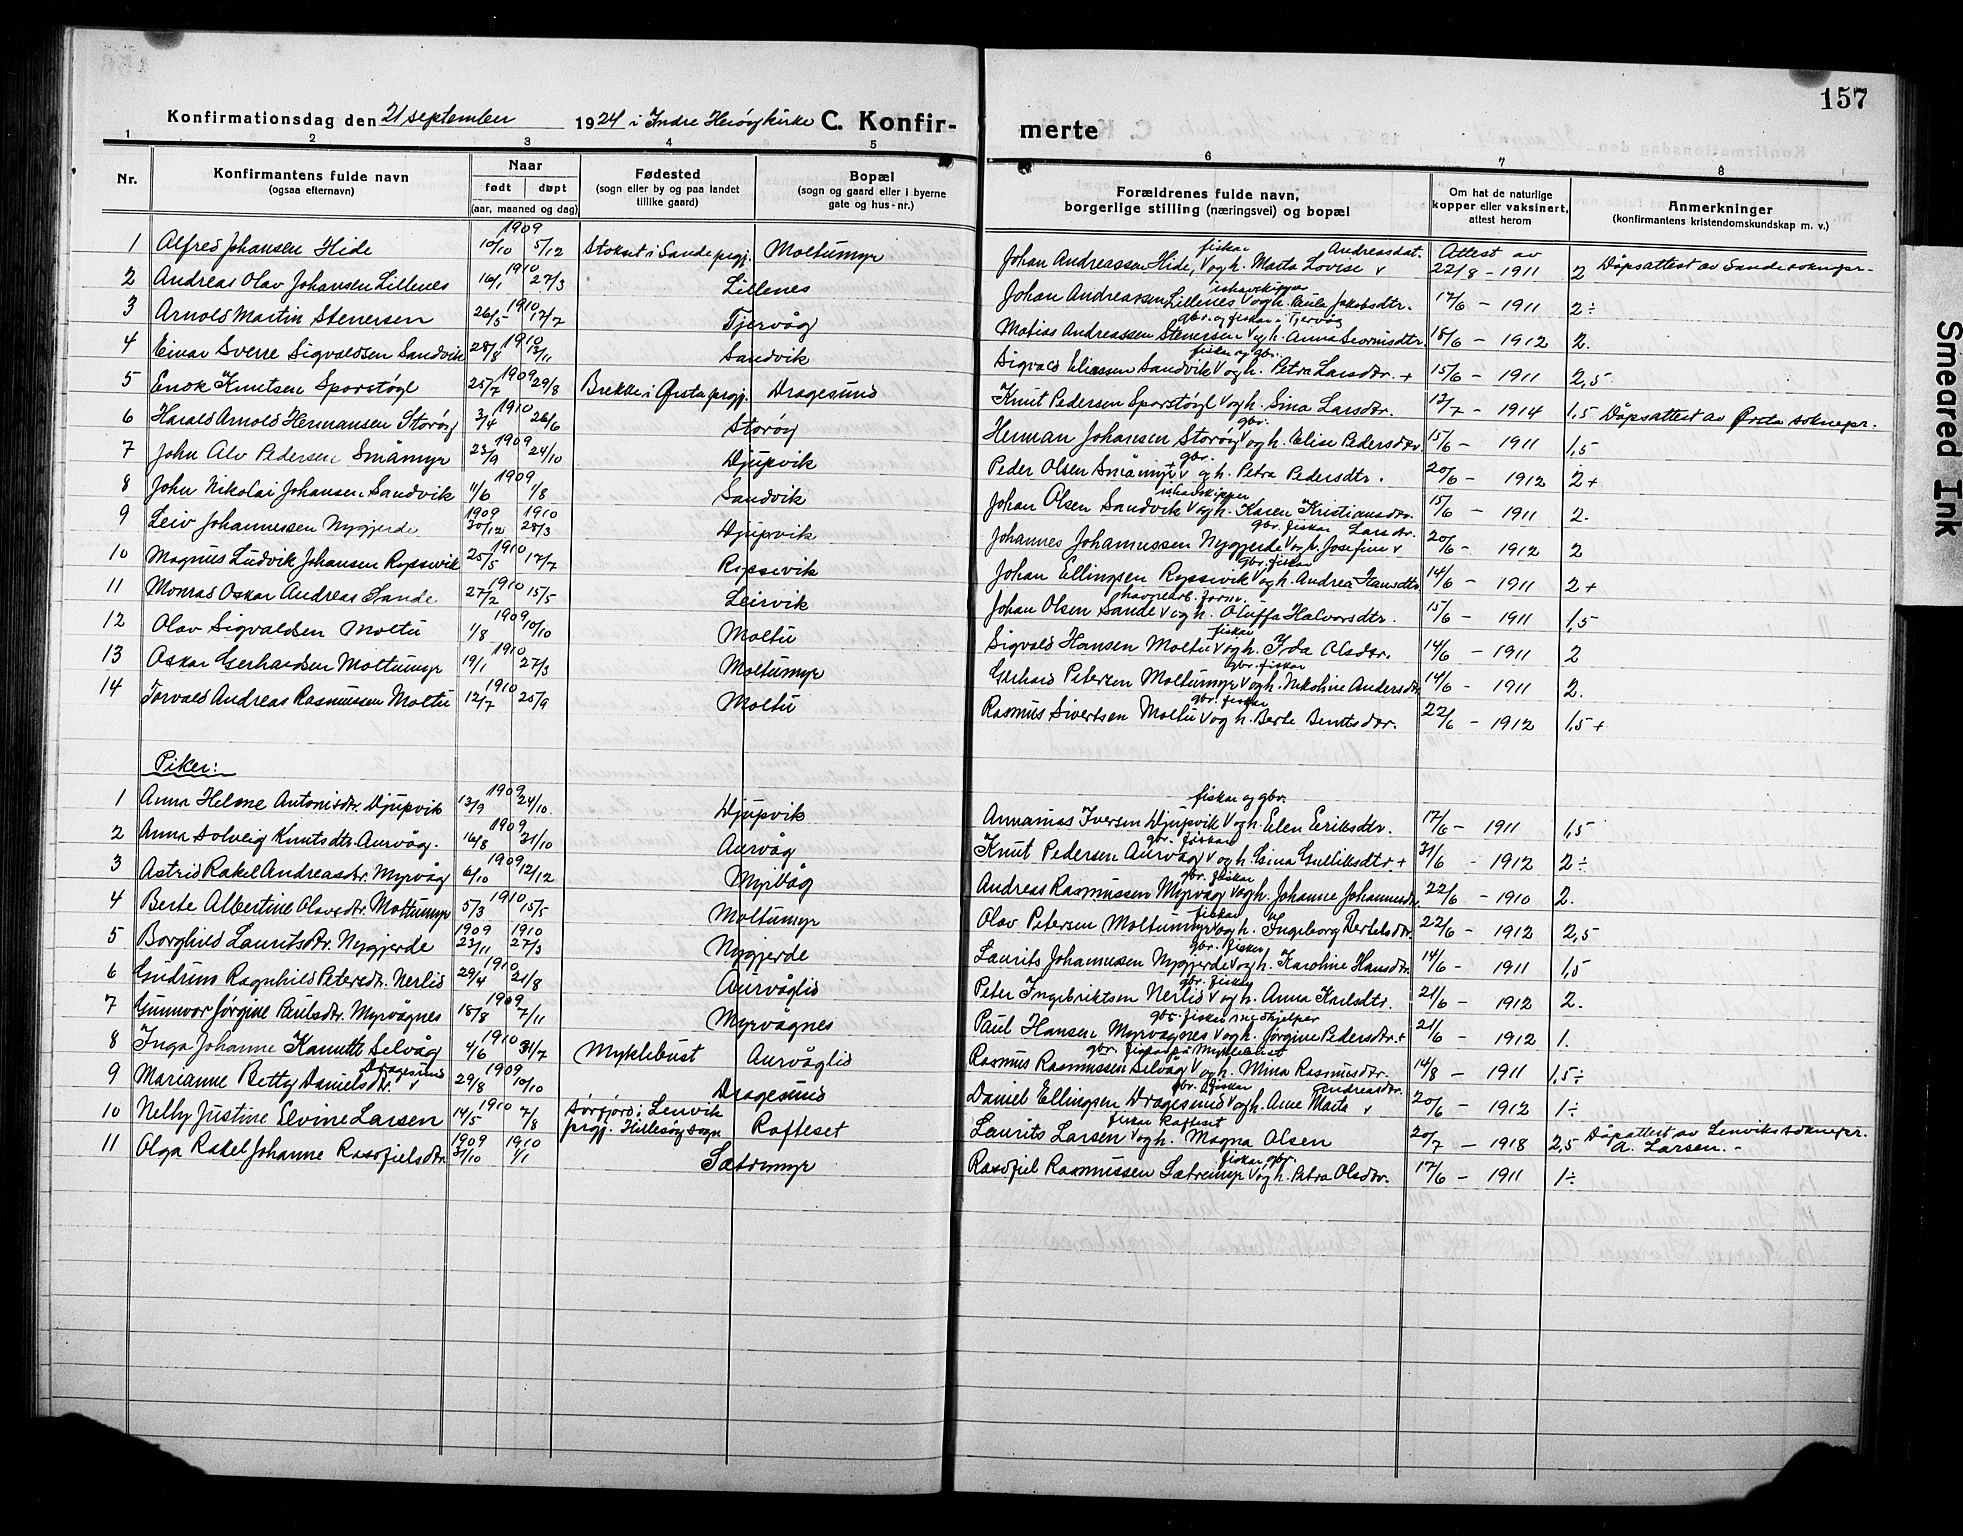 157
Smeared Ink
Konfirmationsdag den 21 september 1924 i Indre Herøy kirke C. Konfir- merte
1 2 3 4 5 6 7 8
Nr.
Konfirmantens fulde navn (ogsaa efternavn)
Naar født døpt (aar, maaned og dag)
Fødested (sogn eller by og paa landet tillike gaard)
Bopæl (sogn og gaard eller i byerne gate og hus-nr.)
Forældrenes fulde navn, borgerlige stilling (næringsvei) og bopæl
Om hat de naturlige kopper eller vaksinert, attest herom
Anmerkninger (konfirmantens kristendomskundskap m. v.)
1 Alfred Johansen Hide 1909 10/10 5/12 Stokset i Sande prgj. Moltumyr Johan Andreassen Hide, fisker v og h. Marta Lovise Andreasdat. v Attest av 22/8 - 1911 2 Dåpsattest av Sande soknepr.
2 Andreas Olav Johansen Lillenes 1910 16/1 27/3 Lillenes Johan Andreassen Lillenes ishavskipper v og h. Paula Jakobsdtr. 17/6 - 1911 2÷
3 Arnold Martin Stenersen 1910 26/5 17/7 Tjervåg Matias Andreassen Stenersen gbr. og fisker i Tjervåg v og h. Anna Severinsdtr. 18/6 - 1912 2.
4 Einar Sverre Sigvaldsen Sandvik 1910 28/8 13/11 Sandvik Sigvald Eliassen Sandvik fisker og gbr. v og h. Petra Larsdtr. + 15/6 - 1911 2,5
5 Enok Knutsen Sporstøyl 1909 25/7 29/8 Brekke i Ørsta prgj. Dragesund Knut Pedersen Sporstøyl v og h. Sina Larsdtr. 13/7 - 1914 1,5 Dåpsattest av Ørsta soknepr.
6 Harald Arnold Hermansen Storøy 1910 3/4 26/6 Storøy Herman Johansen Storøy gbr. v og h. Elise Pedersdtr 15/6 - 1911 1,5
7 John Alv Pedersen Småmyr 1909 23/9 24/10 Djupvik Peder Olsen Småmyr gbr. v og h. Petra Pedersdtr. 20/6 - 1912 2+
8 John Nikolai Johansen Sandvik 1909 11/6 1/8 Sandvik Johan Olsen Sandvik ishavskipper v og h. Karen Kristiansdtr. 15/6 - 1911 2.
9 Leiv Johannessen Nygjerde 1909 30/12 1910 28/3 Djupvik Johannes Johannessen Nygjerde gbr. fisker v og h. Josefine Larsdtr. v 20/6 - 1912 2
10 Magnus Ludvik Johansen Røpsevik 1910 25/5 17/7 Røpsevik Johan Ellingsen Røpsevik gbr. fisker v og h. Andrea Hansdtr. 14/6 - 1911 2+
11 Monrad Oskar Andreas Sande 1910 27/2 15/5 Leirvik Johan Olsen Sande havnearb. form. v og h. Oluffa Halvorsdtr. 15/6 - 1911 1,5
12 Olav Sigvaldsen Moltu 1909 1/8 10/10 Moltu Sigvald Hansen Moltu fisker v og h. Ida Olsdtr. 14/6 - 1911 2
13 Oskar Gerhardsen Moltumyr 1910 19/1 27/3 Moltumyr Gerhard Petersen Moltumyr gbr. fisker v og h. Nikoline Andersdtr 14/6 - 1911 2.
14 Torvald Andreas Rasmussen Moltu 1910 12/7 25/9 Moltu Rasmus Sivertsen Moltu gbr. fisker v og h. Berte Berntsdtr. 22/6 - 1912 1,5+
Piker:
1 Anna Helene Antonisdtr. Djupvik 1909 13/9 24/10 Djupvik Annanias Iversen Djupvik fisker og gbr. v og h. Elen Eriksdtr. 17/6 - 1911 1,5
2 Anna Solveig Knutsdtr. Aurvåg. 1909 16/8 31/10 Aurvåg Knut Pedersen Aurvåg gbr. fisker v og h. Gina Gulliksdtr + 31/6 - 1912 2÷
3 Astrid Rakel Andreasdtr. Myrvåg 1909 6/10 12/12 Myrvåg Andreas Rasmussen Myrvåg gbr. fisker v og h. Johanne Johannesdtr. 22/6 - 1910 2.
4 Berte Albertine Olavsdtr. Moltumyr 1910 5/3 15/5 Moltumyr Olav Petersen Moltumyr fisker v og h. Ingeborg Bertelsdtr. 22/6 - 1912 2,5
5 Borghild Lauritsdtr. Nygjerde 1909 23/11 1910 27/3 Nygjerde Laurits Johannessen Nygjerde gbr. fisker v og h. Karoline Hansdtr. 14/6 - 1911 1,5
6 Gudrun Ragnhild Petersdtr. Nerlid 1910 29/4 21/8 Aurvåglid Peter Ingebriktsen Nerlid gbr. fisker v og h. Anna Karlsdtr. 21/6 - 1912 2.
7 Gunnvor Jørgine Paulsdtr. Myrvågnes 1909 18/8 7/11 Myrvågnes Paul Hansen Myrvågnes gbr. fisker medhjelper v og h. Jørgine Pedersdtr. + 21/6 - 1912 1.
8 Inga Johanne Kanutte Selvåg 1910 4/6 31/7 Myklebust Aurvåglid Rasmus Rasmussen Selvåg gbr. fisker på Myklebust v og h. Mina Rasmusdtr. 14/8 - 1911 1,5÷
9 Marianne Betty Danielsdtr. Dragesund v 1909 29/8 10/10 Dragesund Daniel Ellingsen Dragesund gbr. fisker v og h. Anne Marta Andreasdtr. v 20/6 - 1912 1÷
10 Nelly Justine Elvine Larsen 1910 14/5 7/8 Sørfjord i Lenvik prgj. Hillesøy sogn Rafteset Laurits Larsen fisker Rafteset v og h. Magna Olsen 20/7 - 1918 2,5 Dåpattest av Lenviks soknepr. A. Larsen. -
11 Olga Rakel Johanne Rasofielsdtr 1909 31/10 1910 1/1 Sætremyr Rasofiel Rasmussen Sætremyr fisker gbr. v og h. Petra Olsdtr. 17/6 - 1911 1÷